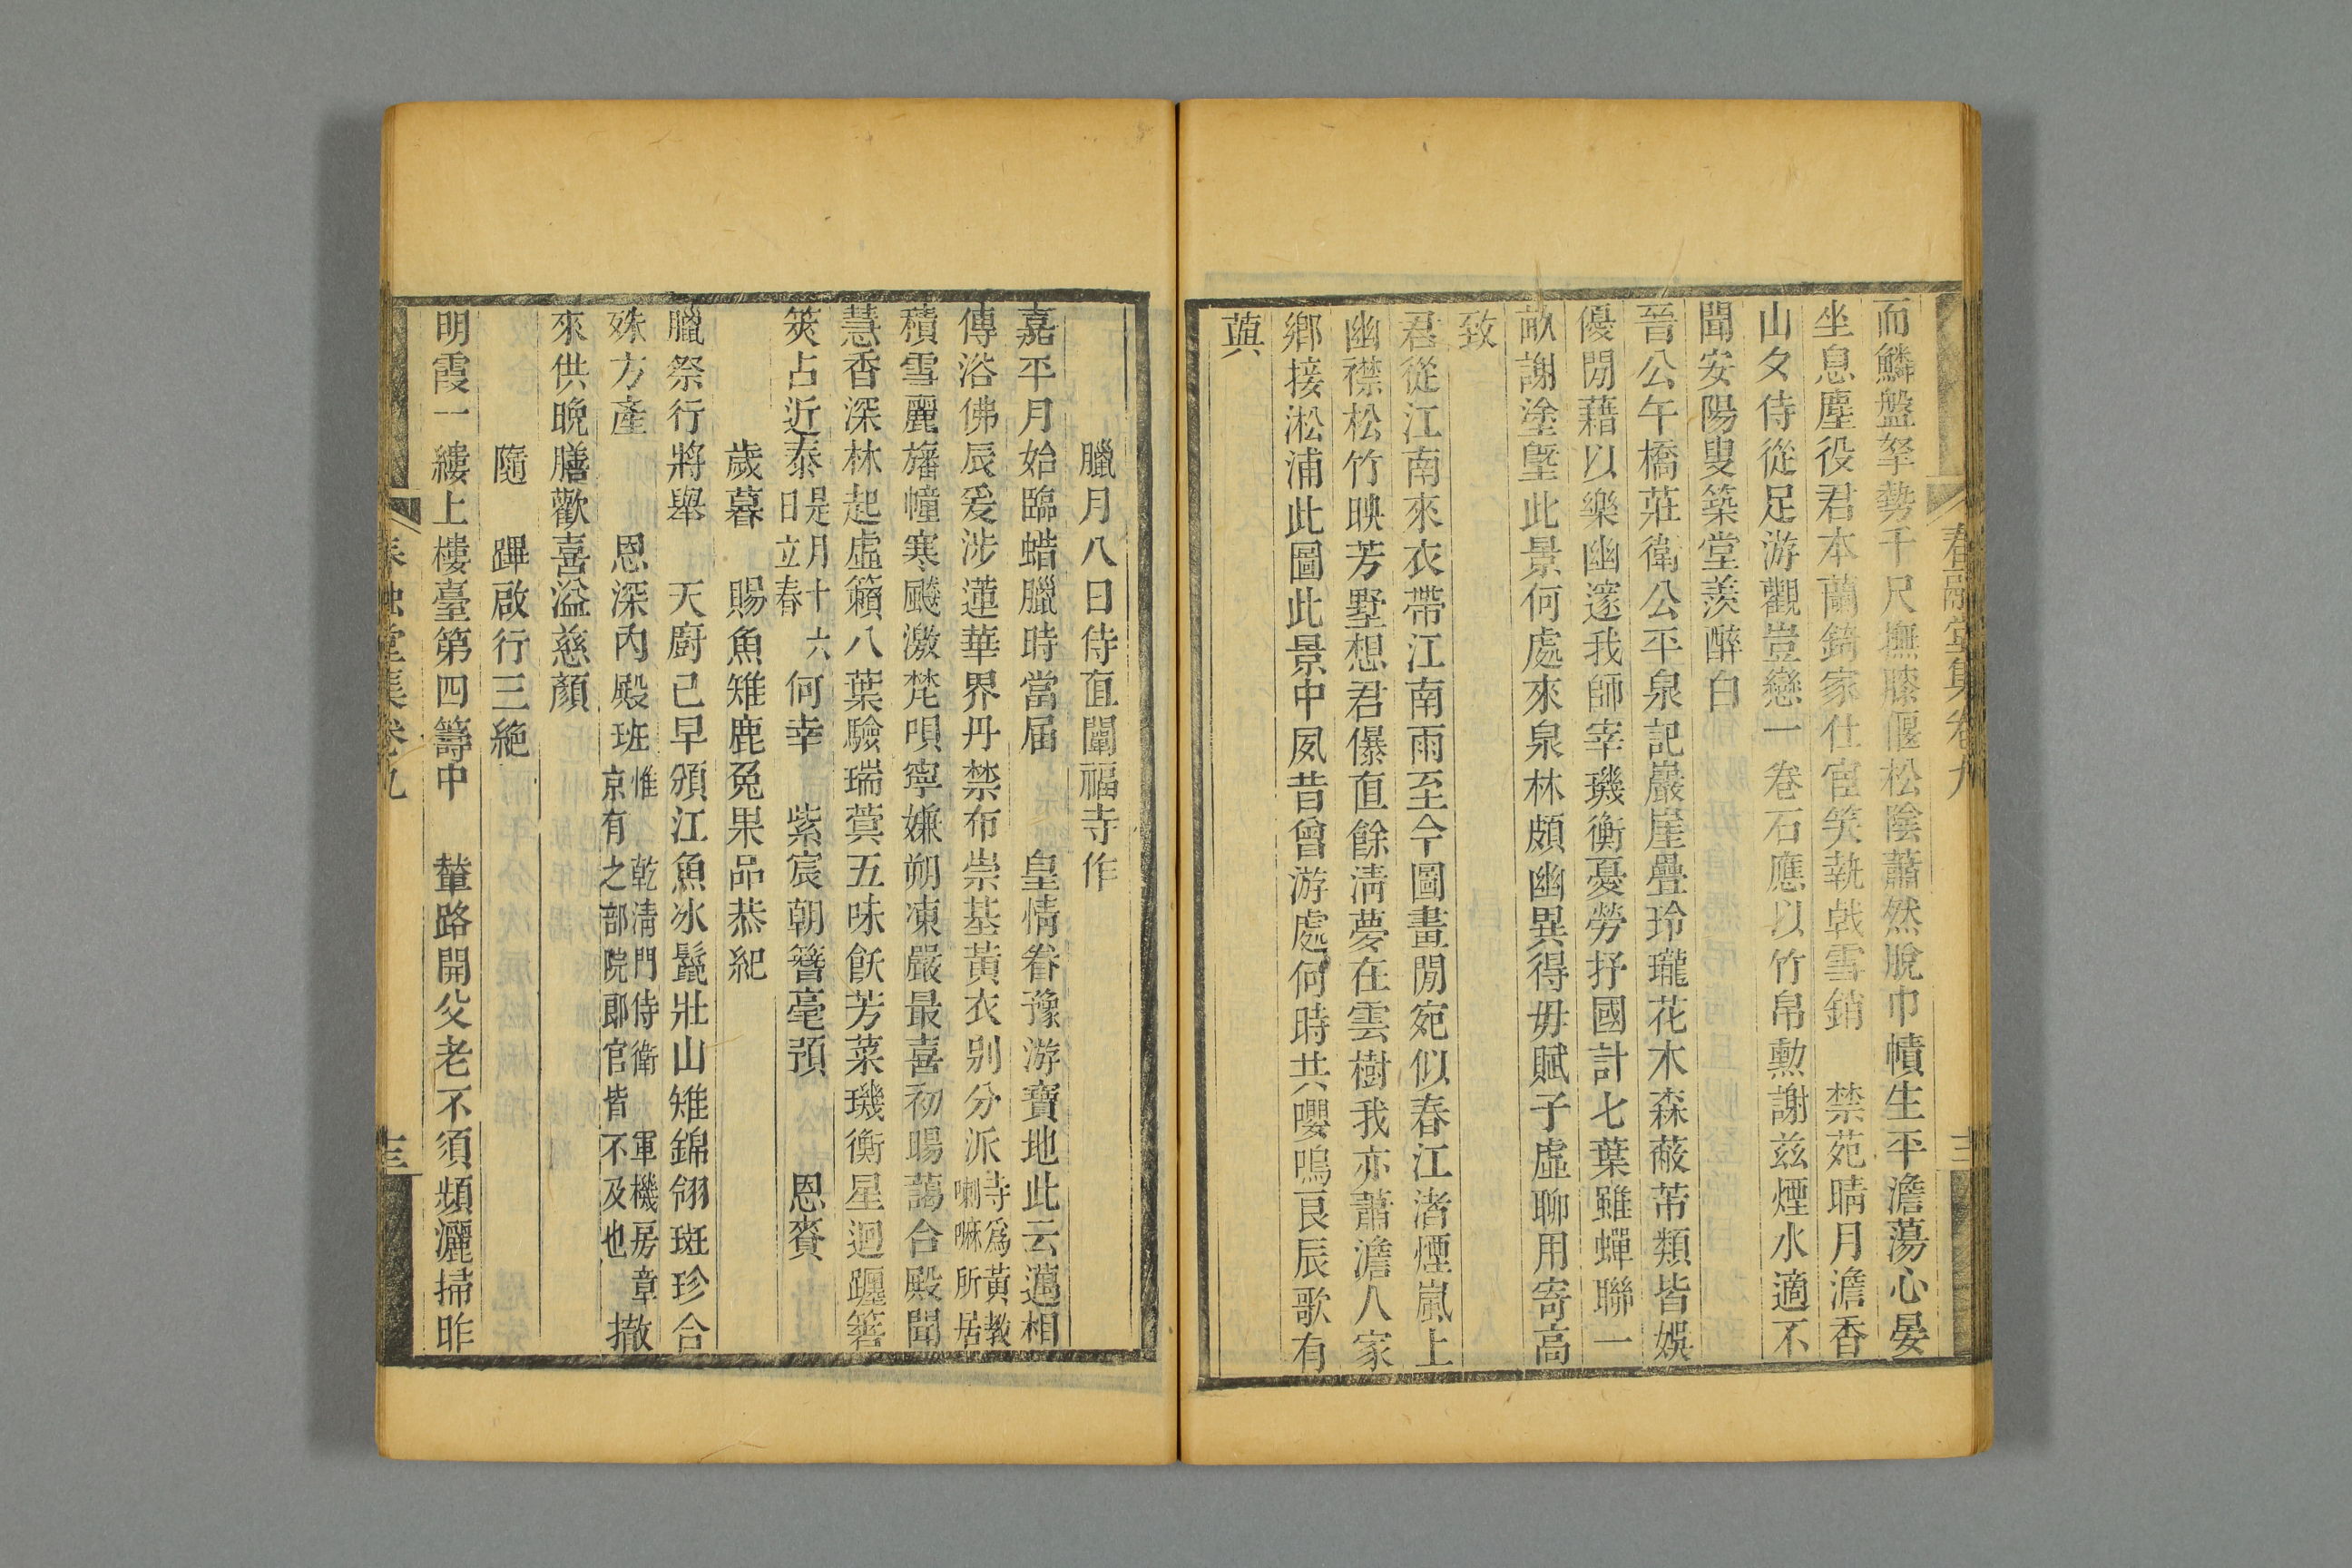 春融堂集卷九
而鱗盤拏勢千尺撫膝偃松陰蕭然脫巾幘生平澹蕩心晏
坐息塵役君本蘭錡家仕宦笑執戟雪銷 禁苑晴月澹香
山夕侍從足游觀豈戀一卷石應以竹帛勳謝兹煙水適不
聞安陽叟築堂羨醉白
晉公午橋莊衛公平泉記巖崖疊玲瓏花木森蔽芾類皆娛
優閒藉以樂幽邃我師宰璣衡憂勞抒國計七葉雖蟬聯一
畝謝塗塈此景何處來泉林頗幽異得毋賦子虛聊用寄高
致
君從江南來衣帶江南雨至今圖畫閒宛似春江渚煙嵐上
幽襟松竹映芳墅想君儤直餘淸夢在雲樹我亦蕭澹人家
鄉接淞浦此圖此景中夙昔曾游處何時共嚶鳴良辰歌有
藇
臘月八日侍直闡福寺作
嘉平月始臨蜡臘時當届 皇情眷豫游寶地此云邁相
傳浴佛辰爰涉蓮華界丹禁布崇基黃衣別分派寺爲黃教
喇嘛所居
積雪麗旛幢寒飈激梵唄寧嫌朔凍嚴最喜初暘藹合殿聞
慧香深林起虛籟八葉驗瑞蓂五味飫芳菜璣衡星迴躔箬
筴占近泰是月十六
日立春何幸 紫宸朝簪毫預 恩賚
歲暮 賜魚雉鹿兔果品恭紀
臘祭行將舉 天廚已早頒江魚冰鬣壯山雉錦翎斑珍合
殊方產 恩深內殿班惟 乾淸門侍衛 軍機房章
京有之部院郎官皆不及也撤
來供晚膳歡喜溢慈顏
隨 蹕啟行三絶
明霞一縷上樓臺第四籌中 輦路開父老不須頻灑掃昨
春融堂集卷九